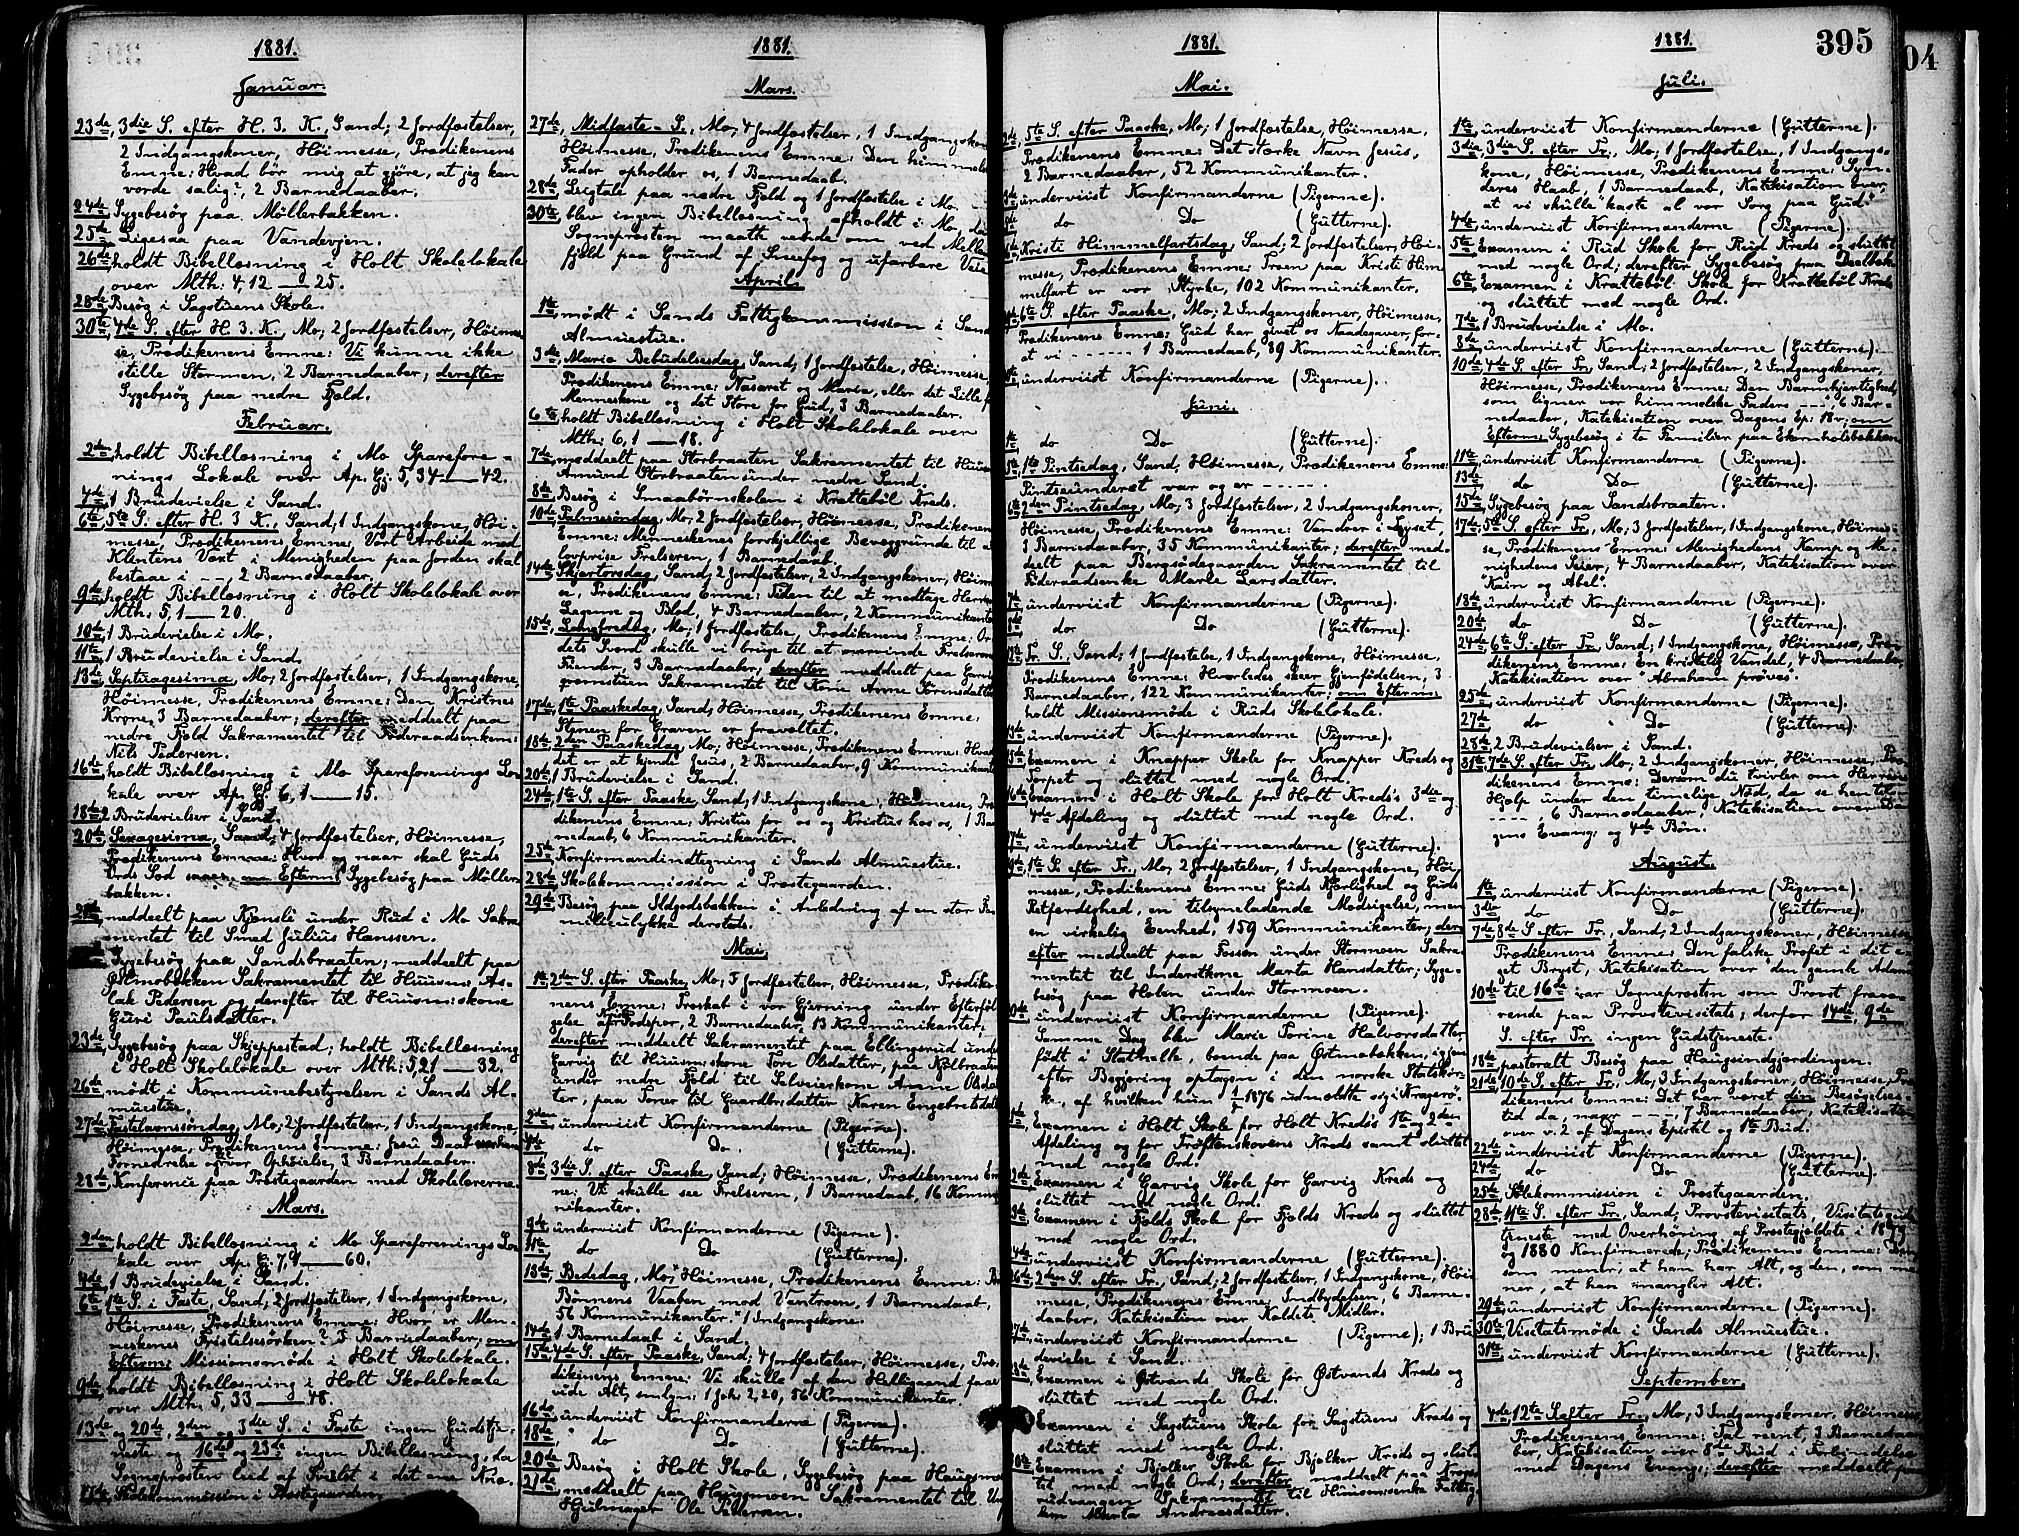 1881.
Januar.
23de, 3die S. efter H. 3. K., Sand; 2 Jordfæstelser,
2 Indgangskoner, Høimesse, Prædikenens
Emne: Hvad bør mig at gjøre, at jeg kan
vorde salig?, 2 Barnedaaber.
24de, Sygebesøg paa Møllerbakken.
25de, Ligesaa paa Vandevjen.
26de, holdt Bibellæsning i Holt Skolelokale
over Mth: 4, 12 — 25.
28de, Besøg i Sagstuens Skole.
30te, 4de S. efter H. 3. K., Mo, 2 Jordfæstelser, Høimes-
se, Prædikenens Emne: Vi kunne ikke
stille Stormen, 2 Barnedaaber; derefter
Sygebesøg paa nedre Fjeld.
Februar.
2den, holdt Bibellæsning i Mo Sparefore-
nings Lokale over Ap. Gj. 5, 34 — 42.
4de, 1 Brudevielse i Sand.
6te, 5te S. efter H. 3 K., Sand, 1 Indgangskone, Høi-
messe, Prædikenens Emne: Vort Arbeide med
Klintens Væxt i Menigheden paa Jorden skal
bestaae i - -, 2 Barnedaaber.
9de, holdt Bibellæsning i Holt Skolelokale over
Mth: 5, 1 — 20.
10de, 1 Brudevielse i Mo.
11te, 1 Brudevielse i Sand.
13de, Septuagesima, Mo, 2 Jordfæstelser, 1 Indgangskone,
Høimesse, Prædikenens Emne: Den Kristnes
Krone, 3 Barnedaaber; derefter meddeelt paa
nedre Fjeld Sakramentet til Føderaadsenkem:
Nils Pedersen.
16de, holdt Bibellæsning i Mo Spareforenings Lo-
kale over Ap. Gj. 6, 1 — 15.
18de, 2 Brudevielser i Sand.
20de, Sexagesima, Sand, 4 Jordfæstelser, Høimesse,
Prædikenens Emne: Hvor og naar skal Guds
Ords Sæd saaes, om Efterm: Sygebesøg paa Møller-
bakken.
meddeelt paa Kjensli under Rud i Mo Sakra-
mentet til Smed Julius Hanssen.
Sygebesøg paa Sandsbraaten; meddeelt paa
Østmobakken Sakramentet til Huusm. As-
lak Pedersen og derefter til Huusm:skone
Guri Paulsdatter.
23de, Sygebesøg paa Skjeppestad; holdt Bibellæsning
i Holt Skolelokale over Mth: 5, 21 — 32.
26de, mødt i Kommunebestyrelsen i Sands Al-
muestue.
27de, Fastelavnssøndag, Mo, 2 Jordfæstelser, 1 Indgangskone,
Høimesse, Prædikenens Emne: Jesu Daab
Fornedrelse og vor Ophøielse, 3 Barnedaaber.
28de, Konference paa Præstegaarden med Skolelærerne.
Mars.
2den, holdt Bibellæsning i Mo Spareforenings Lo-
kale over Ap. Gj. 7, 1 — 60.
4de, 1 Brudevielse i Sand.
6te, 1ste S. i Faste, Sand, 2 Jordfæstelser, 1 Indgangskone,
Høimesse, Prædikenens Emne: Hvor er Men-
neskenes Fristelsesørken?, 5 Barnedaaber; om
Efterm: Missionsmøde i Holt Skolelokale.
9de, holdt Bibellæsning i Holt Skolelokale
over Mth: 5, 33 — 48.
13de og 20de, 2den og 3die S. i Faste ingen Gudstje-
neste og 16de og 23de ingen Bibellæsning, da
Sognepræsten led af
Skolekommission i Præstegaarden.
1881.
Mars.
27de, Midfaste-S., Mo, 4 Jordfæstelser, 1 Indgangskone,
Høimesse, Prædikenens Emne: Den himmelske
Fader opholder os, 1 Barnedaab.
28de, Ligtale paa nedre Fjeld og 1 Jordfæstelse i Mo.
30te, blev ingen Bibellæsning afholdt i Mo, da
Sognepræsten maatte vende om ved Mellem-
fjeld paa Grund af Sneefog og ufarbare Veie.
April.
1ste, mødt i Sands Fattigkommission i Sands
Almuestue.
3die, Mariæ Bebudelsesdag, Sand, 1 Jordfæstelse, Høimesse,
Prædikenens Emne: Nasaret og Maria, eller det Lille for
Menneskene og det Store for Gud, 3 Barnedaaber.
6te, holdt Bibellæsning i Holt Skolelokale over
Mth: 6, 1 — 18.
7de, meddeelt paa Storbraaten Sakramentet til Huusm.
Amund Storbraaten under nedre Sand.
8de, Besøg i Smaabørnskolen i Krattebøl Kreds.
10de, Palmesøndag, Mo, 2 Jordfæstelser, Høimesse, Prædikenens
Emne: Menneskenes forskjellige Bevæggrunde til at
lovprise Frelseren, 1 Barnedaab.
14de, Skjærtorsdag, Sand, 2 Jordfæstelser, 2 Indgangskoner, Høimes-
se, Prædikenens Emne: Tiden til at modtage Herrens
Legeme og Blod, 4 Barnedaaber, 2 Kommunikanter.
15de, Langfredag, Mo; 1 Jordfæstelse, Prædikenens Emne: Or-
dets Sværd skulle vi bruge til at overvinde Frelserens
Fiender, 3 Barnedaaber, derefter meddeelt paa
Sakramentet til Kone Anne Sørensdatter.
17de, 1ste Paaskedag, Sand, Høimesse, Prædikenens Emne:
Stenen for Graven er fravæltet.
18de, 2den Paaskedag, Mo; Høimesse, Prædikenens Emne: Hvad
det er at kjende Jesus, 2 Barnedaaber, 9 Kommunikanter.
20de, 1 Brudevielse i Sand.
24de, 1ste S. efter Paaske, Sand, 1 Indgangskone, Høimesse, Præ-
dikenens Emne: Kristus for os og Kristus hos os, 1 Bar-
nedaab, 6 Kommunikanter.
25de, Konfirmandindtegning i Sands Almuestue.
28de, Skolekommission i Præstegaarden.
29de, Besøg paa Ildjødsbakken i Anledning af en stor Fa-
milieulykke dersteds.
Mai.
1ste, 2den S. efter Paaske, Mo, 5 Jordfæstelser, Høimesse, Prædike-
nens Emne: Troskab i vor Gjerning under Efterføl-
gelse af Kristi Fodspor, 2 Barnedaaber, 13 Kommunikanter;
derefter meddeelt Sakramentet paa Ellingsrud under
Garvig til Huusm:skone Tore Olsdatter, paa Kølbraaten
under nedre Fjeld til Selveierkone Anne Olsdat-
ter, paa Toner til Gaardbrsdatter Karen Engebretsdatter.
2den, underviist Konfirmanderne (Pigerne).
4de, do Do. (Gutterne).
8de, 3die S. efter Paaske, Sand; Høimesse, Prædikenens Em-
ne: Vi skulle see Frelseren, 1 Barnedaab, 16 Kommu-
nikanter.
9de, underviist Konfirmanderne (Pigerne).
11te, do Do (Gutterne).
13de, Bededag, Mo, Høimesse, Prædikenens Emne:
Bønnens Vaaben mod Vantroen, 1 Barnedaab,
56 Kommunikanter. × 1 Indgangskone.
14de, 1 Barnedaab i Sand.
15de, 4de S. efter Paaske, Sand; 4 Jordfæstelser, Høimesse, Præ-
dikenens Emne: Vi skulle af den Helligaand faae
vide Alt, smlgn: 1 Joh: 2, 20, 56 Kommunikanter.
16de, underviist Konfirmanderne (Pigerne).
18de, do Do (Gutterne).
20de, Besøg i Holt Skole, Sygebesøg paa Haugsmoen.
21de, meddeelt paa Haugsmoen Sakramentet til
Hjulmager Ole Pedersen.
1881.
Mai.
5te S. efter Paaske, Mo; 1 Jordfæstelse, Høimesse,
Prædikenens Emne: Det stærke Navn Jesus,
2 Barnedaaber, 52 Kommunikanter.
underviist Konfirmanderne (Pigerne).
do Do (Gutterne).
Kristi Himmelfartsdag, Sand; 2 Jordfæstelser, Høi-
messe, Prædikenens Emne: Troen paa Kristi Him-
melfart er vor Styrke, 102 Kommunikanter.
6te S. efter Paaske, Mo; 2 Indgangskoner, Høimesse,
Prædikenens Emne: Gud har givet os Naadegaver, for-
at vi - - - - - - 1 Barnedaab, 89 Kommunikanter.
underviist Konfirmanderne (Pigerne).
Juni.
do Do (Gutterne).
1ste Pintsedag, Sand, Høimesse, Prædikenens Emne:
Pintseunderet var og er - - - - -
2den Pintsedag, Mo, 3 Jordfæstelser, 2 Indgangskoner,
Høimesse, Prædikenens Emne: Vandrer i Lyset,
3 Barnedaaber, 35 Kommunikanter; derefter med-
deelt paa Bergsødegaarden Sakramentet til
Føderaadsenke Marte Larsdatter.
underviist Konfirmanderne (Pigerne).
do Do (Gutterne).
Tr. S., Sand; 1 Jordfæstelse, 1 Indgangskone, Høimesse,
Prædikenens Emne: Hvorledes skeer Gjenfødelsen, 3
Barnedaaber, 122 Kommunikanter; om Efterm:
holdt Missionsmøde i Ruds Skolelokale.
underviist Konfirmanderne (Pigerne).
Examen i Knapper Skole for Knapper Kreds og
Torpet og sluttet med nogle Ord.
16de, Examen i Holt Skole for Holt Kreds's 3die og
4de Afdeling og sluttet med nogle Ord.
underviist Konfirmanderne (Gutterne).
1ste S. efter Tr., Mo, 2 Jordfæstelser, 1 Indgangskone, Høi-
messe, Prædikenens Emne: Guds Kjærlighed og Guds
Retfærdighed, en tilsyneladende Modsigelse, men
en virkelig Eenhed, 159 Kommunikanter; der-
efter meddeelt paa Fossen under Stormoen Sakra-
mentet til Inderstkone Marta Hansdatter; Syge-
besøg paa Holen under Stormoen.
underviist Konfirmanderne (Pigerne).
Samme Dag blev Marie Torine Halvorsdatter,
født i Stathelle, boende paa Østmobakken, igjen
efter Begjæring optagen i den norske Statskir-
ke, af hvilken hun 1876 udmeldte sig i Kragerø.
Examen i Holt Skole for Holt Kreds's 1ste og 2den
Afdeling og for Trøftenskovens Kreds samt sluttet
med nogle Ord.
Examen i Garvig Skole for Garvig Kreds og
sluttet med nogle Ord.
Examen i Fjelds Skole for Fjelds Kreds og sluttet
med nogle Ord.
underviist Konfirmanderne (Gutterne).
26de, 2den S. efter Tr., Sand; 2 Jordfæstelser, 1 Indgangskone, Høi-
messe, Prædikenens Emne: Indbydelsen, 6 Barne-
daaber, Katekisation over Kaldets Midler.
underviist Konfirmanderne (Pigerne); 1 Bru-
devielse i Sand.
Examen i Østvands Skole for Østvands Kreds og
sluttet med nogle Ord.
Examen i Sagstuens Skole for Sagstuens Kreds og
sluttet med nogle Ord.
Examen i Bjølker Skole for Bjølker Kreds og slut-
tet med nogle Ord; derefter meddeelt paa
Sakramentet til Huusm:senke
Andreasdatter.
395
1881.
Juli.
1ste, underviist Konfirmanderne (Gutterne).
3die, 3die S. efter Tr., Mo, 1 Jordfæstelse, 1 Indgangs-
kone, Høimesse, Prædikenens Emne: Syn-
deres Haab, 1 Barnedaab, Katekisation over,
at vi skulle "kaste al vor Sorg paa Gud".
4de, underviist Konfirmanderne (Pigerne).
5te, Examen i Rud Skole for Rud Kreds og sluttet
med nogle Ord; derefter Sygebesøg paa
6te, Examen i Krattebøl Skole for Krattebøl Kreds
og sluttet med nogle Ord.
7de, 1 Brudevielse i Mo.
8de, underviist Konfirmanderne (Gutterne).
10de, 4de S. efter Tr., Sand; 2 Jordfæstelser, 2 Indgangskoner,
Høimesse, Prædikenens Emne: Den Barmhjertighed,
som ligner vor himmelske Faders - - -, 6 Bar-
nedaaber, Katekisation over Dagens Ep: 18 v; om
Efterm: Sygebesøg i to Familier paa Ekornholsbakken.
11te, underviist Konfirmanderne (Pigerne).
13de, do Do (Gutterne).
15de, Sygebesøg paa Sandsbraaten.
17de, 5te S. efter Tr., Mo, 3 Jordfæstelser, 1 Indgangskone, Høimes-
se, Prædikenens Emne: Menighedens Kamp og Me-
nighedens Seier, 4 Barnedaaber, Katekisation over
"Kain og Abel".
18de, underviist Konfirmanderne (Pigerne).
20de, do Do (Gutterne).
24de, 6te S. efter Tr., Sand, 1 Indgangskone, Høimesse, Præ-
dikenens Emne: En kristelig Vandel, 4 Barnedaaber,
Katekisation over "Abraham prøves".
25de, underviist Konfirmanderne (Pigerne).
27de, do Do (Gutterne).
28de, 2 Brudevielser i Sand.
31te, 7de S. efter Tr., Mo, 2 Indgangskoner, Høimesse, Præ-
dikenens Emne: Dersom du tvivler om Herrens
Hjælp under den timelige Nød, da se hen til
- - - -, 6 Barnedaaber, Katekisation over Da-
gens Evang: og 4de Bøn.
August.
1ste, underviist Konfirmanderne (Pigerne).
3die, do Do (Gutterne).
7de, 8de S. efter Tr., Sand, 2 Indgangskoner, Høimesse,
Prædikenens Emne: Den falske Profet i dit e-
get Bryst, Katekisation over den gamle Adam.
10de til 16de var Sognepræsten som Provst fravæ-
rende paa Provstevisitats; derfor 14de, 9de
S. efter Tr. ingen Gudstjeneste.
18de, pastoralt Besøg paa Haugsindgjærdingen.
21de, 10de S. efter Tr., Mo, 3 Indgangskoner, Høimesse, Præ-
dikenens Emne: Det har været din Besøgelses-
tid da, naar - - -, 7 Barnedaaber, Katekisation
over v. 2 af Dagens Epistel og 1ste Bud.
22de, underviist Konfirmanderne (Pigerne).
24de, do Do (Gutterne).
25de, Skolekommission i Præstegaarden.
28de, 11te S. efter Tr., Sand, Provstevisitats, Visitatsguds-
tjeneste med Overhøring af Præstegjeldets i 1879
og 1880 Konfirmerede; Prædikenens Emne: Den,
som mener, at han har Alt, og den, som me-
ner, at han mangler Alt.
29de, underviist Konfirmanderne (Pigerne).
30te, Visitatsmøde i Sands Almuestue.
31te, underviist Konfirmanderne (Gutterne).
September.
4de, 12te S. efter Tr., Mo, 3 Indgangskoner, Høimesse,
Prædikenens Emne: Tal reent, 3 Barnedaa-
ber, Katekisation over 8de Bud i Forbindelse
med Dagens Evang:; derefter meddeelt paa
04